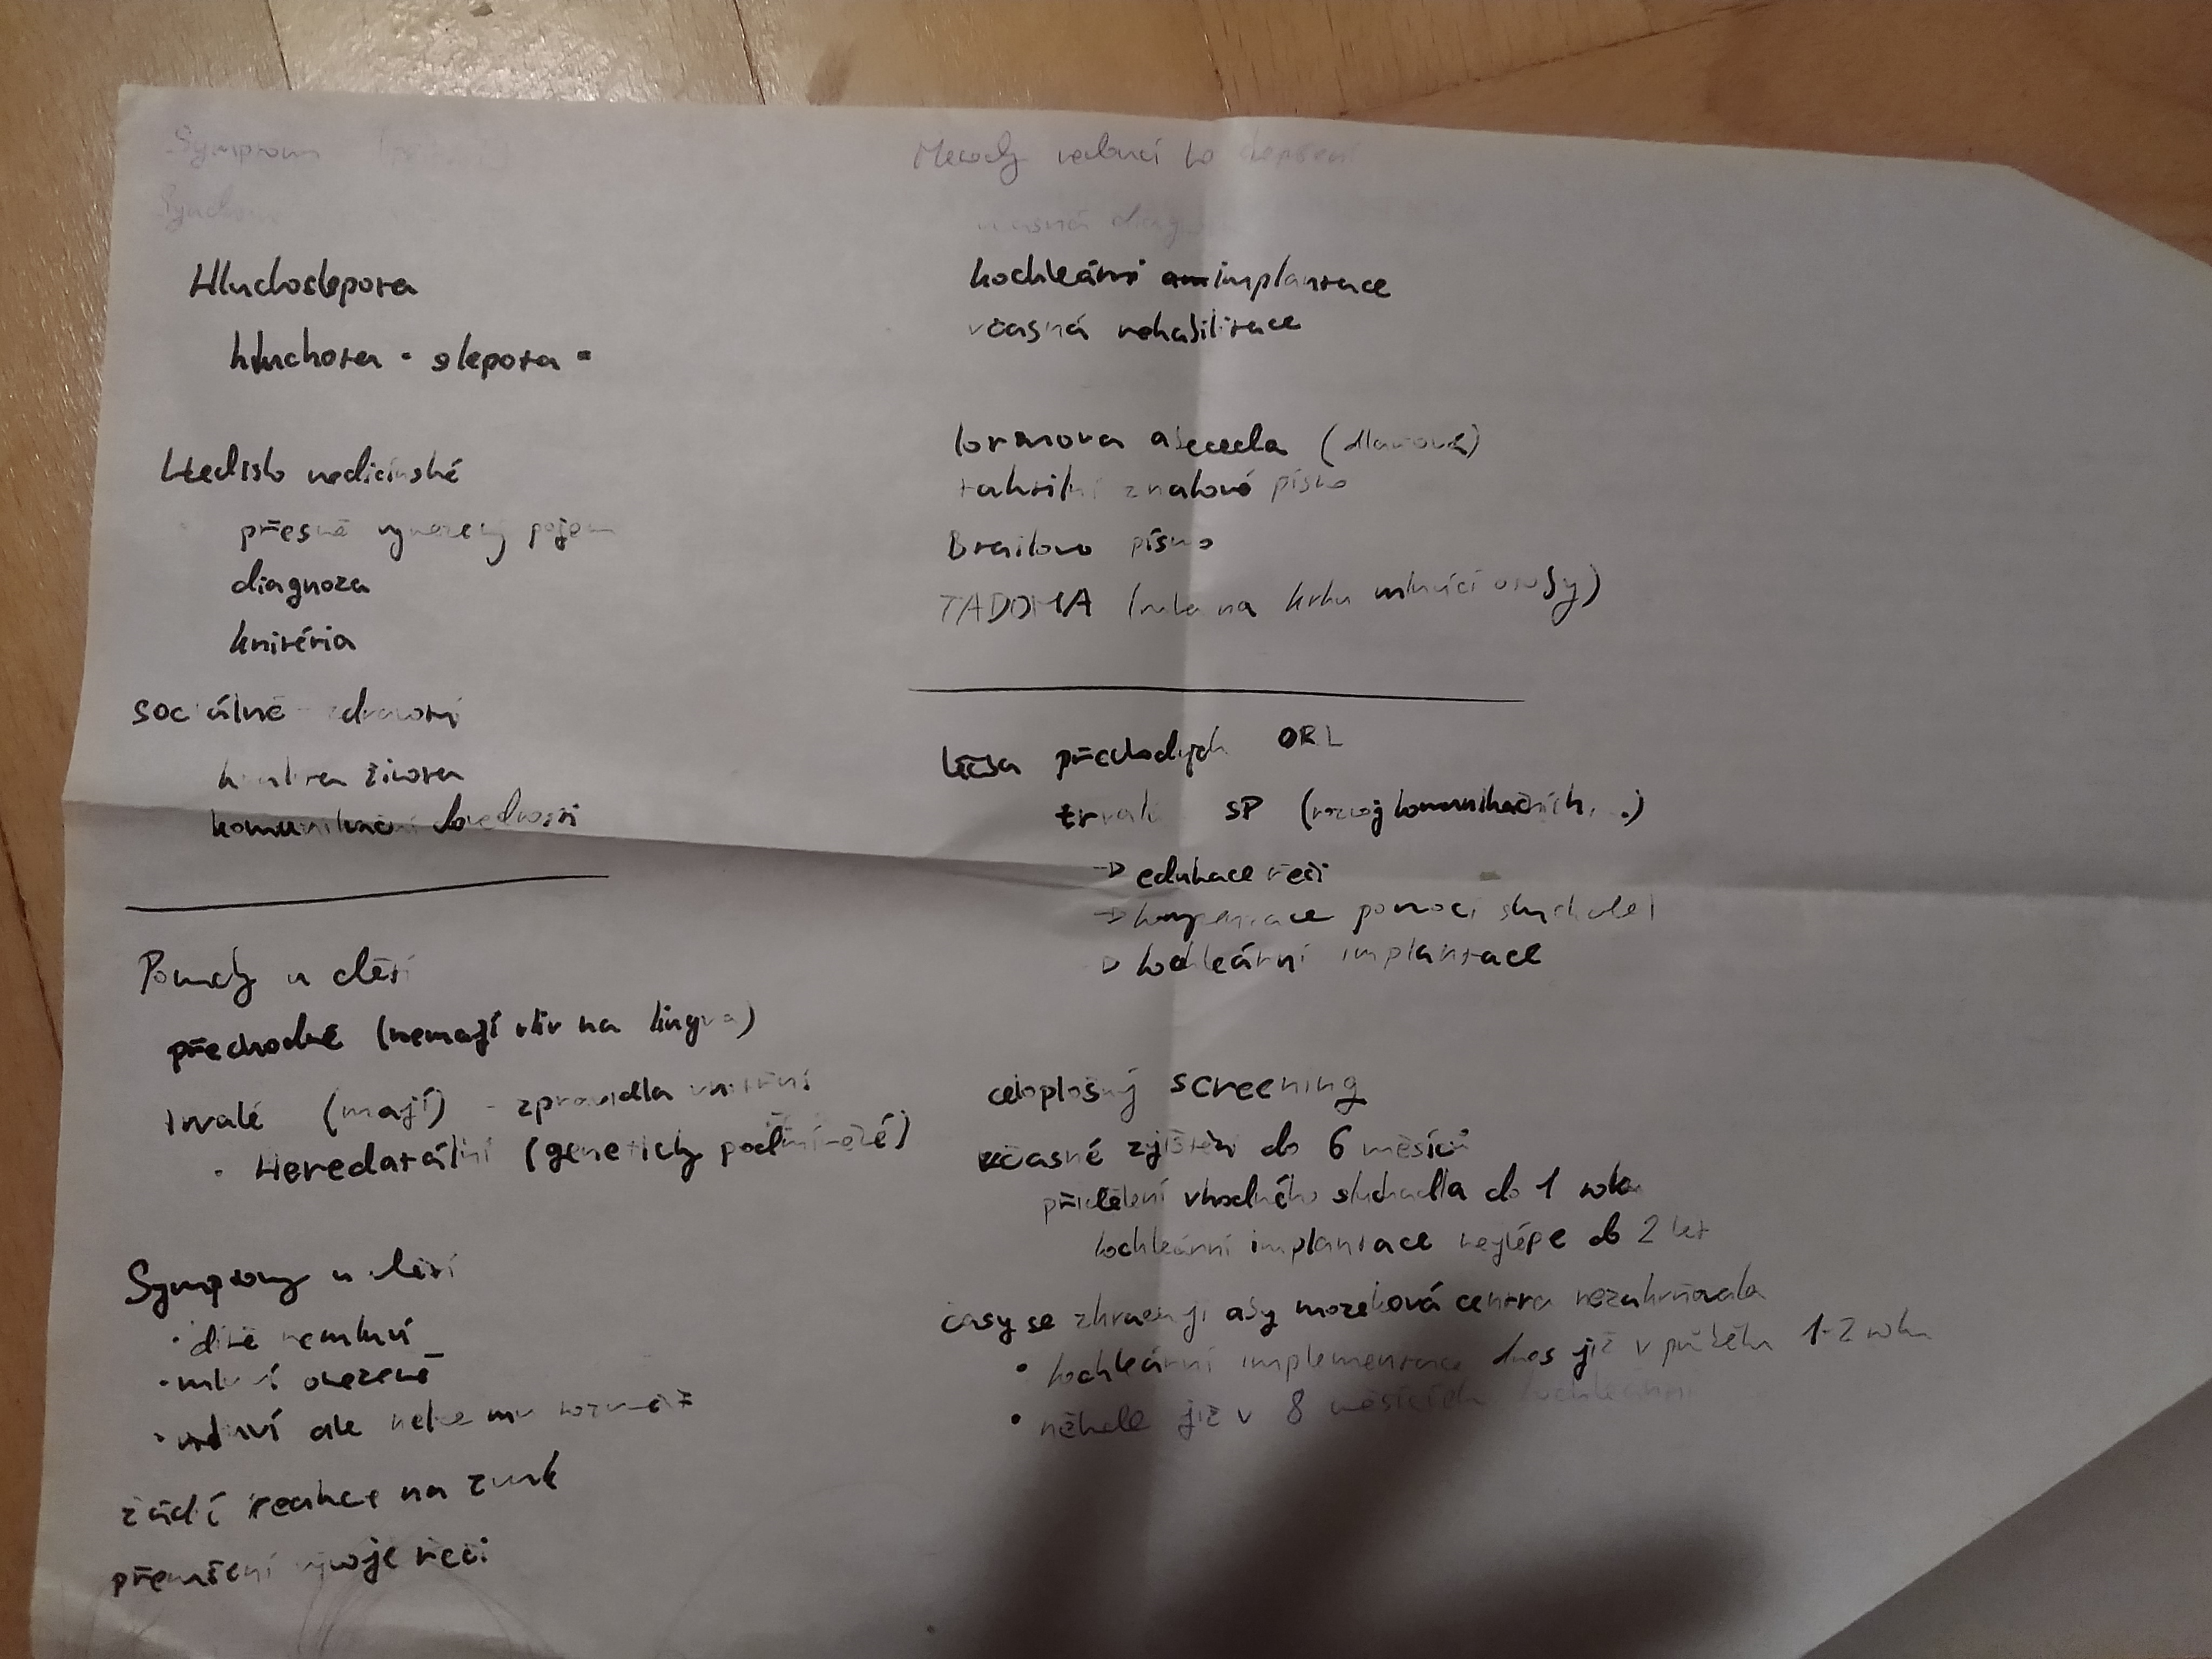 Symptom
Hluchoslepota
hluchota - slepota -
Hledisko medicínské
přesně vymezený pojem
diagnoza
kritéria
sociálně zdravotní
kvalita života
komunikační dovednosti
Poruchy u dětí
přechodné (nemají vliv na lingva)
trvalé (mají) - zpravidla vnitřní
• Heredatální (geneticky podmíněné)
Symptomy u dětí
• dítě nemluví
• mluví omezeně
• mluví ale nelze mu rozumět
žádí reakce na zvuk
přerušení vývoje řeči
Metody vedoucí ke zlepšení
včasná diag
kochleární implantace
včasná rehabilitace
lormova abeceda (dlaňová)
taktilní znakové písmo
Brailovo písmo
TADOMA (ruka na krku mluvící osoby)
léčba přechodých ORL
trvalé SP (rozvoj komunikačních, ..)
→ edukace řeči
→ kompenzace pomocí sluchadel
→ kochleární implantace
celoplošný screening
včasné zjištění do 6 měsíců
přidělení vhodného sluchadla do 1 roku
kochleární implantace nejlépe do 2 let
časy se zkracují aby mozeková centra nezakrňovala
• kochleární implementace dnes již v průběhu 1-2 roku
• někde již v 8 měsících kochleární